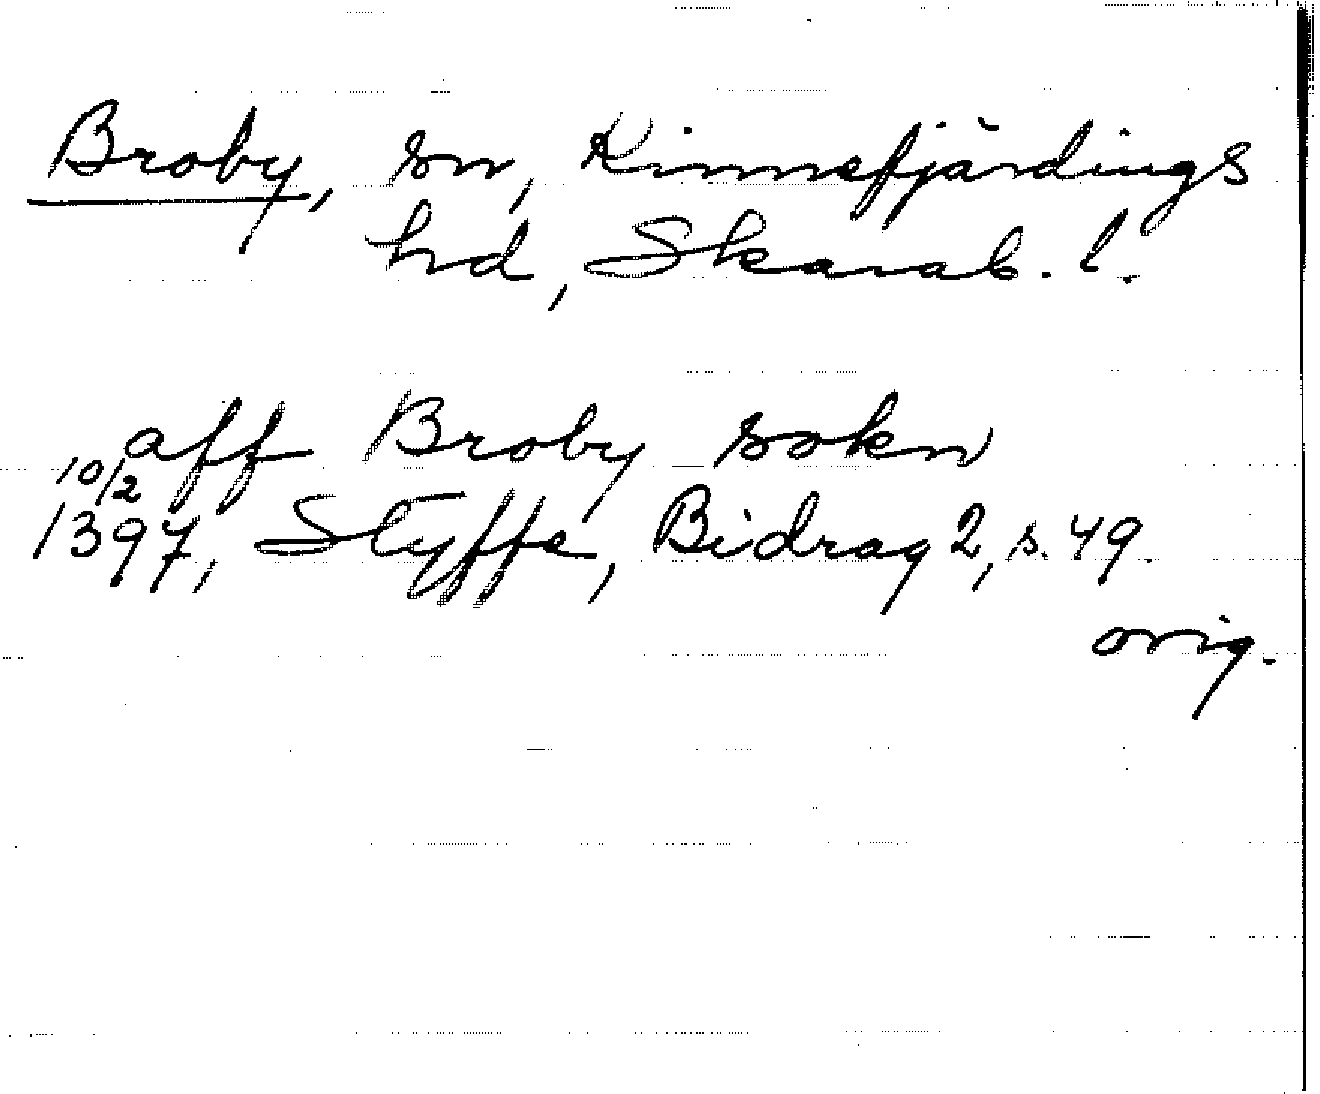 Broby, sn, Kinnefjärdings
hd, Skarab. l.
aff Broby sokn
10/2
1397, Styffe, Bidrag 2, s. 49.
orig.